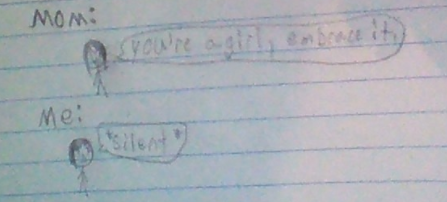 Mom:
you're a girl, embrace it.
Me:
*silent*